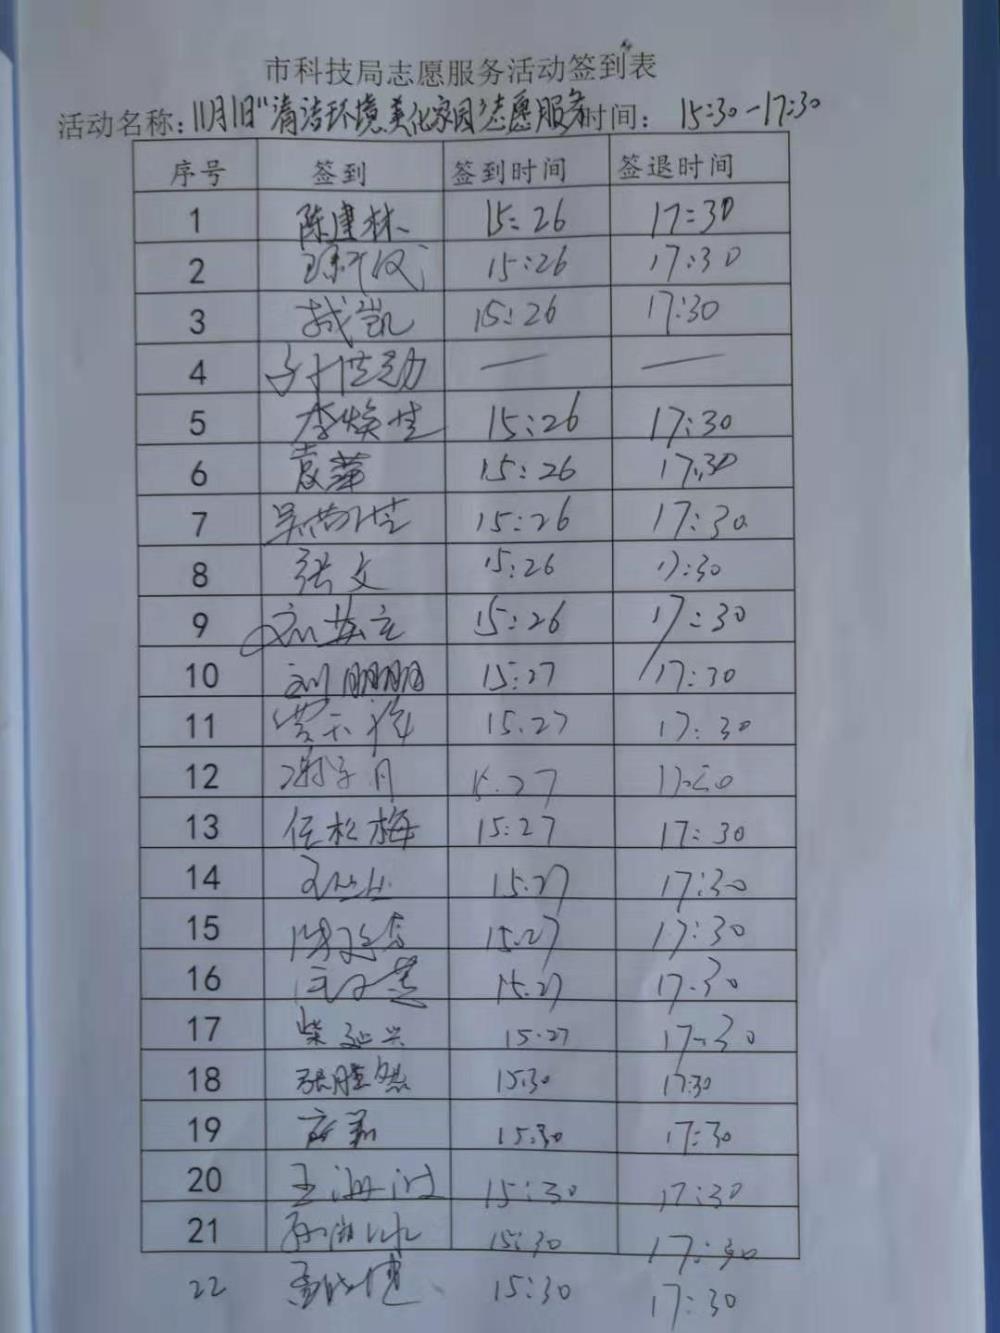 市科技局志愿服务活动签到表
活动名称：11月1日"清洁环境美化家园"志愿服务时间： 15:30-17:30
序号 签到 签到时间 签退时间
1 陈建林 15:26 17:30
2 15:26 17:30
3 凯 15:26 17:30
4 — —
5 李焕生 15:26 17:30
6 袁萍 15:26 17:30
7 15:26 17:30
8 张文 15:26 17:30
9 15:26 17:30
10 刘朋朋 15:27 17:30
11 15.27 17:30
12 15.27 17:30
13 任松梅 15:27 17:30
14 15.27 17:30
15 15.27 17:30
16 15.27 17.30
17 柴延兴 15.27 17:30
18 张胜 15:30 17:30
19 15:30 17:30
20 王海波 15:30 17:30
21 15:30 17:30
22 15:30 17:30